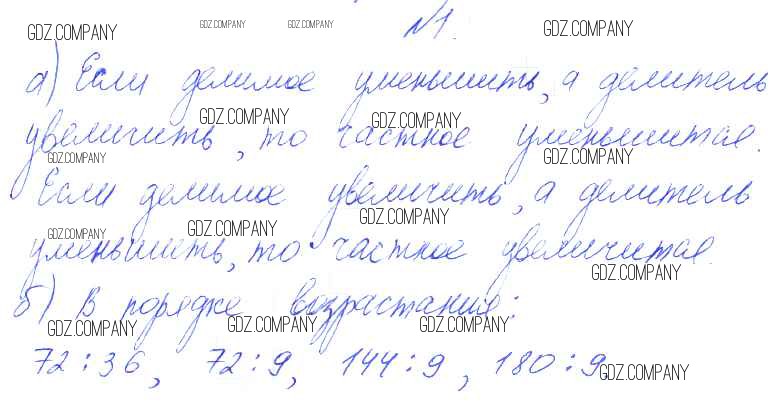 №1.
а) Если делимое уменьшить, а делитель
увеличить, то частное уменьшится.
Если делимое увеличить, а делитель
уменьшить, то частное увеличится.
б) В порядке возрастания:
72:36, 72:9, 144:9, 180:9.
GDZ.COMPANY GDZ.COMPANY GDZ.COMPANY GDZ.COMPANY
GDZ.COMPANY GDZ.COMPANY
GDZ.COMPANY GDZ.COMPANY
GDZ.COMPANY GDZ.COMPANY GDZ.COMPANY
GDZ.COMPANY
GDZ.COMPANY GDZ.COMPANY GDZ.COMPANY
GDZ.COMPANY